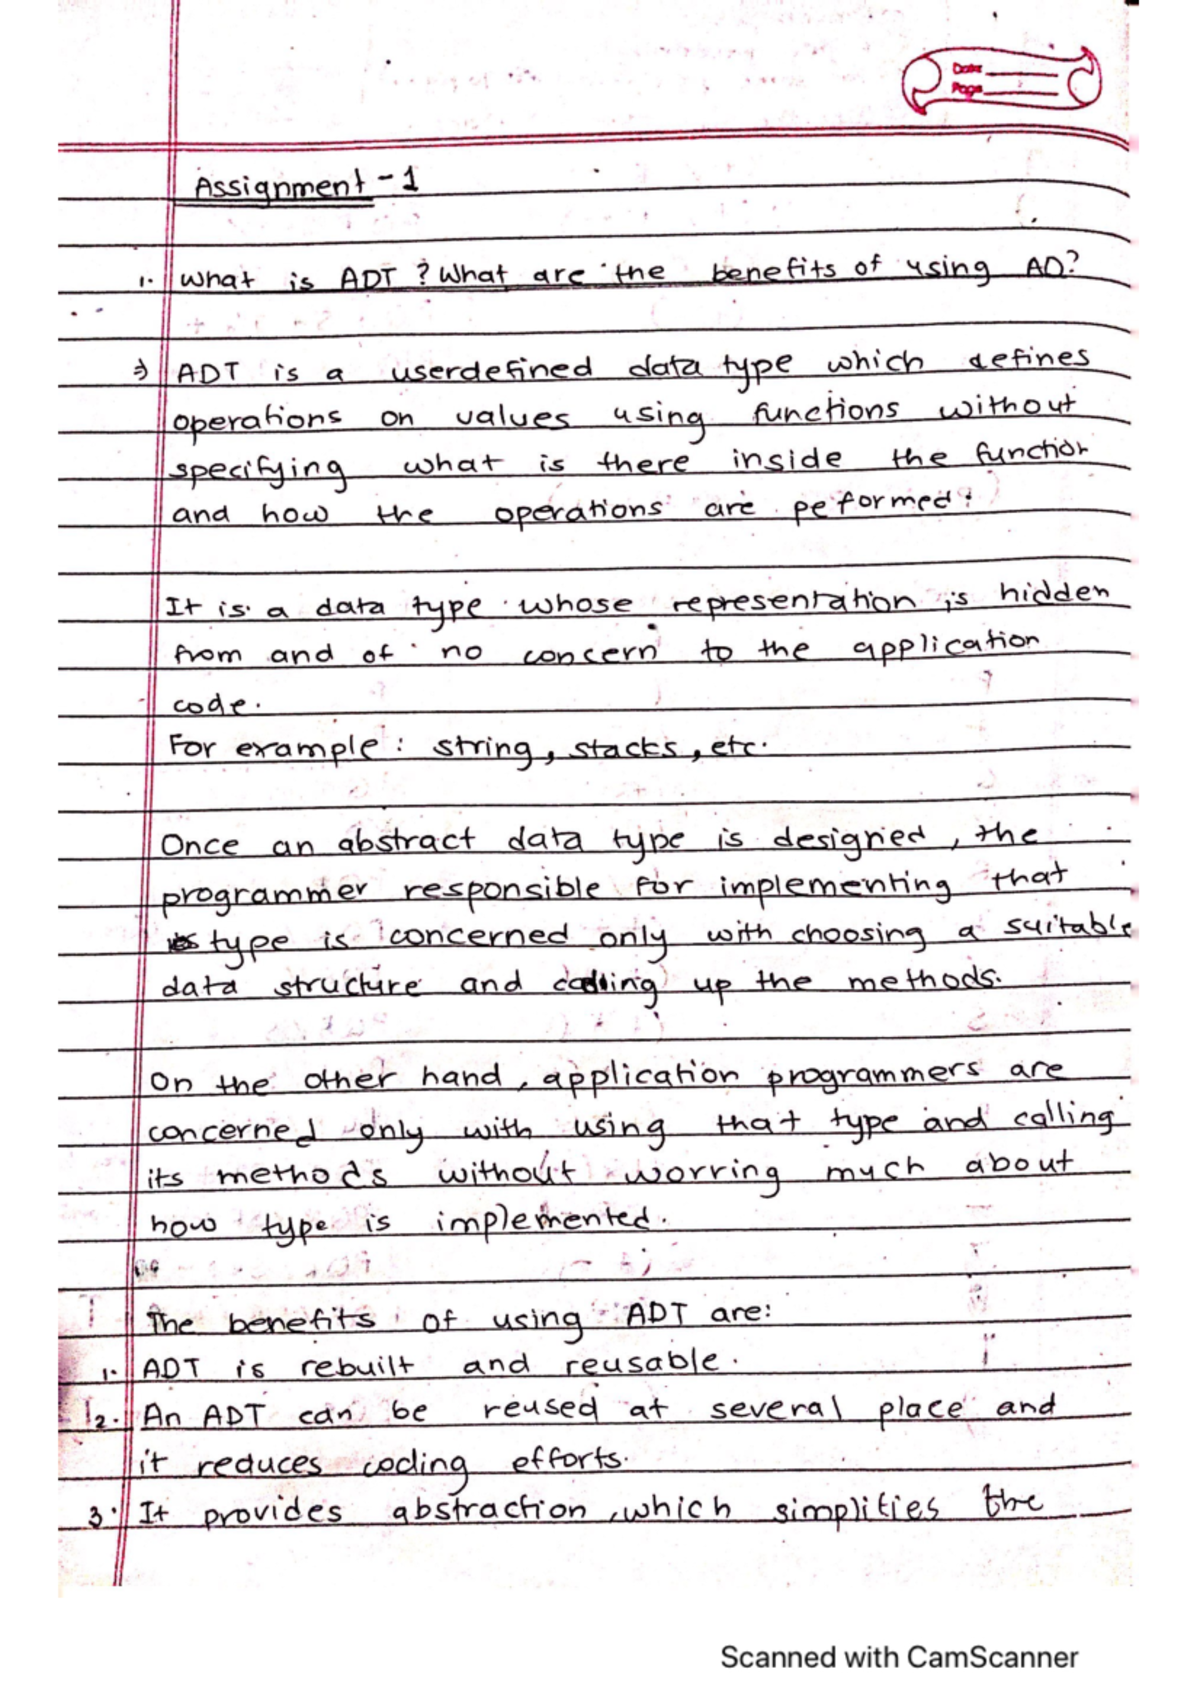 Date
Page
Assignment - 1
1. What is ADT ? What are the benefits of using AD?
⇒ ADT is a userdefined data type which defines
operations on values using functions without
specifying what is there inside the function
and how the operations are peformed.
It is a data type whose representation is hidden
from and of no concern to the application
code.
For example : string, stacks, etc.
Once an abstract data type is designed, the
programmer responsible for implementing that
type is concerned only with choosing a suitable
data structure and calling up the methods.
On the other hand, application programmers are
concerned only with using that type and calling
its methods without worring much about
how type is implemented.
The benefits of using ADT are:
1. ADT is rebuilt and reusable.
2. An ADT can be reused at several place and
it reduces coding efforts.
3. It provides abstraction, which simplities the
Scanned with CamScanner